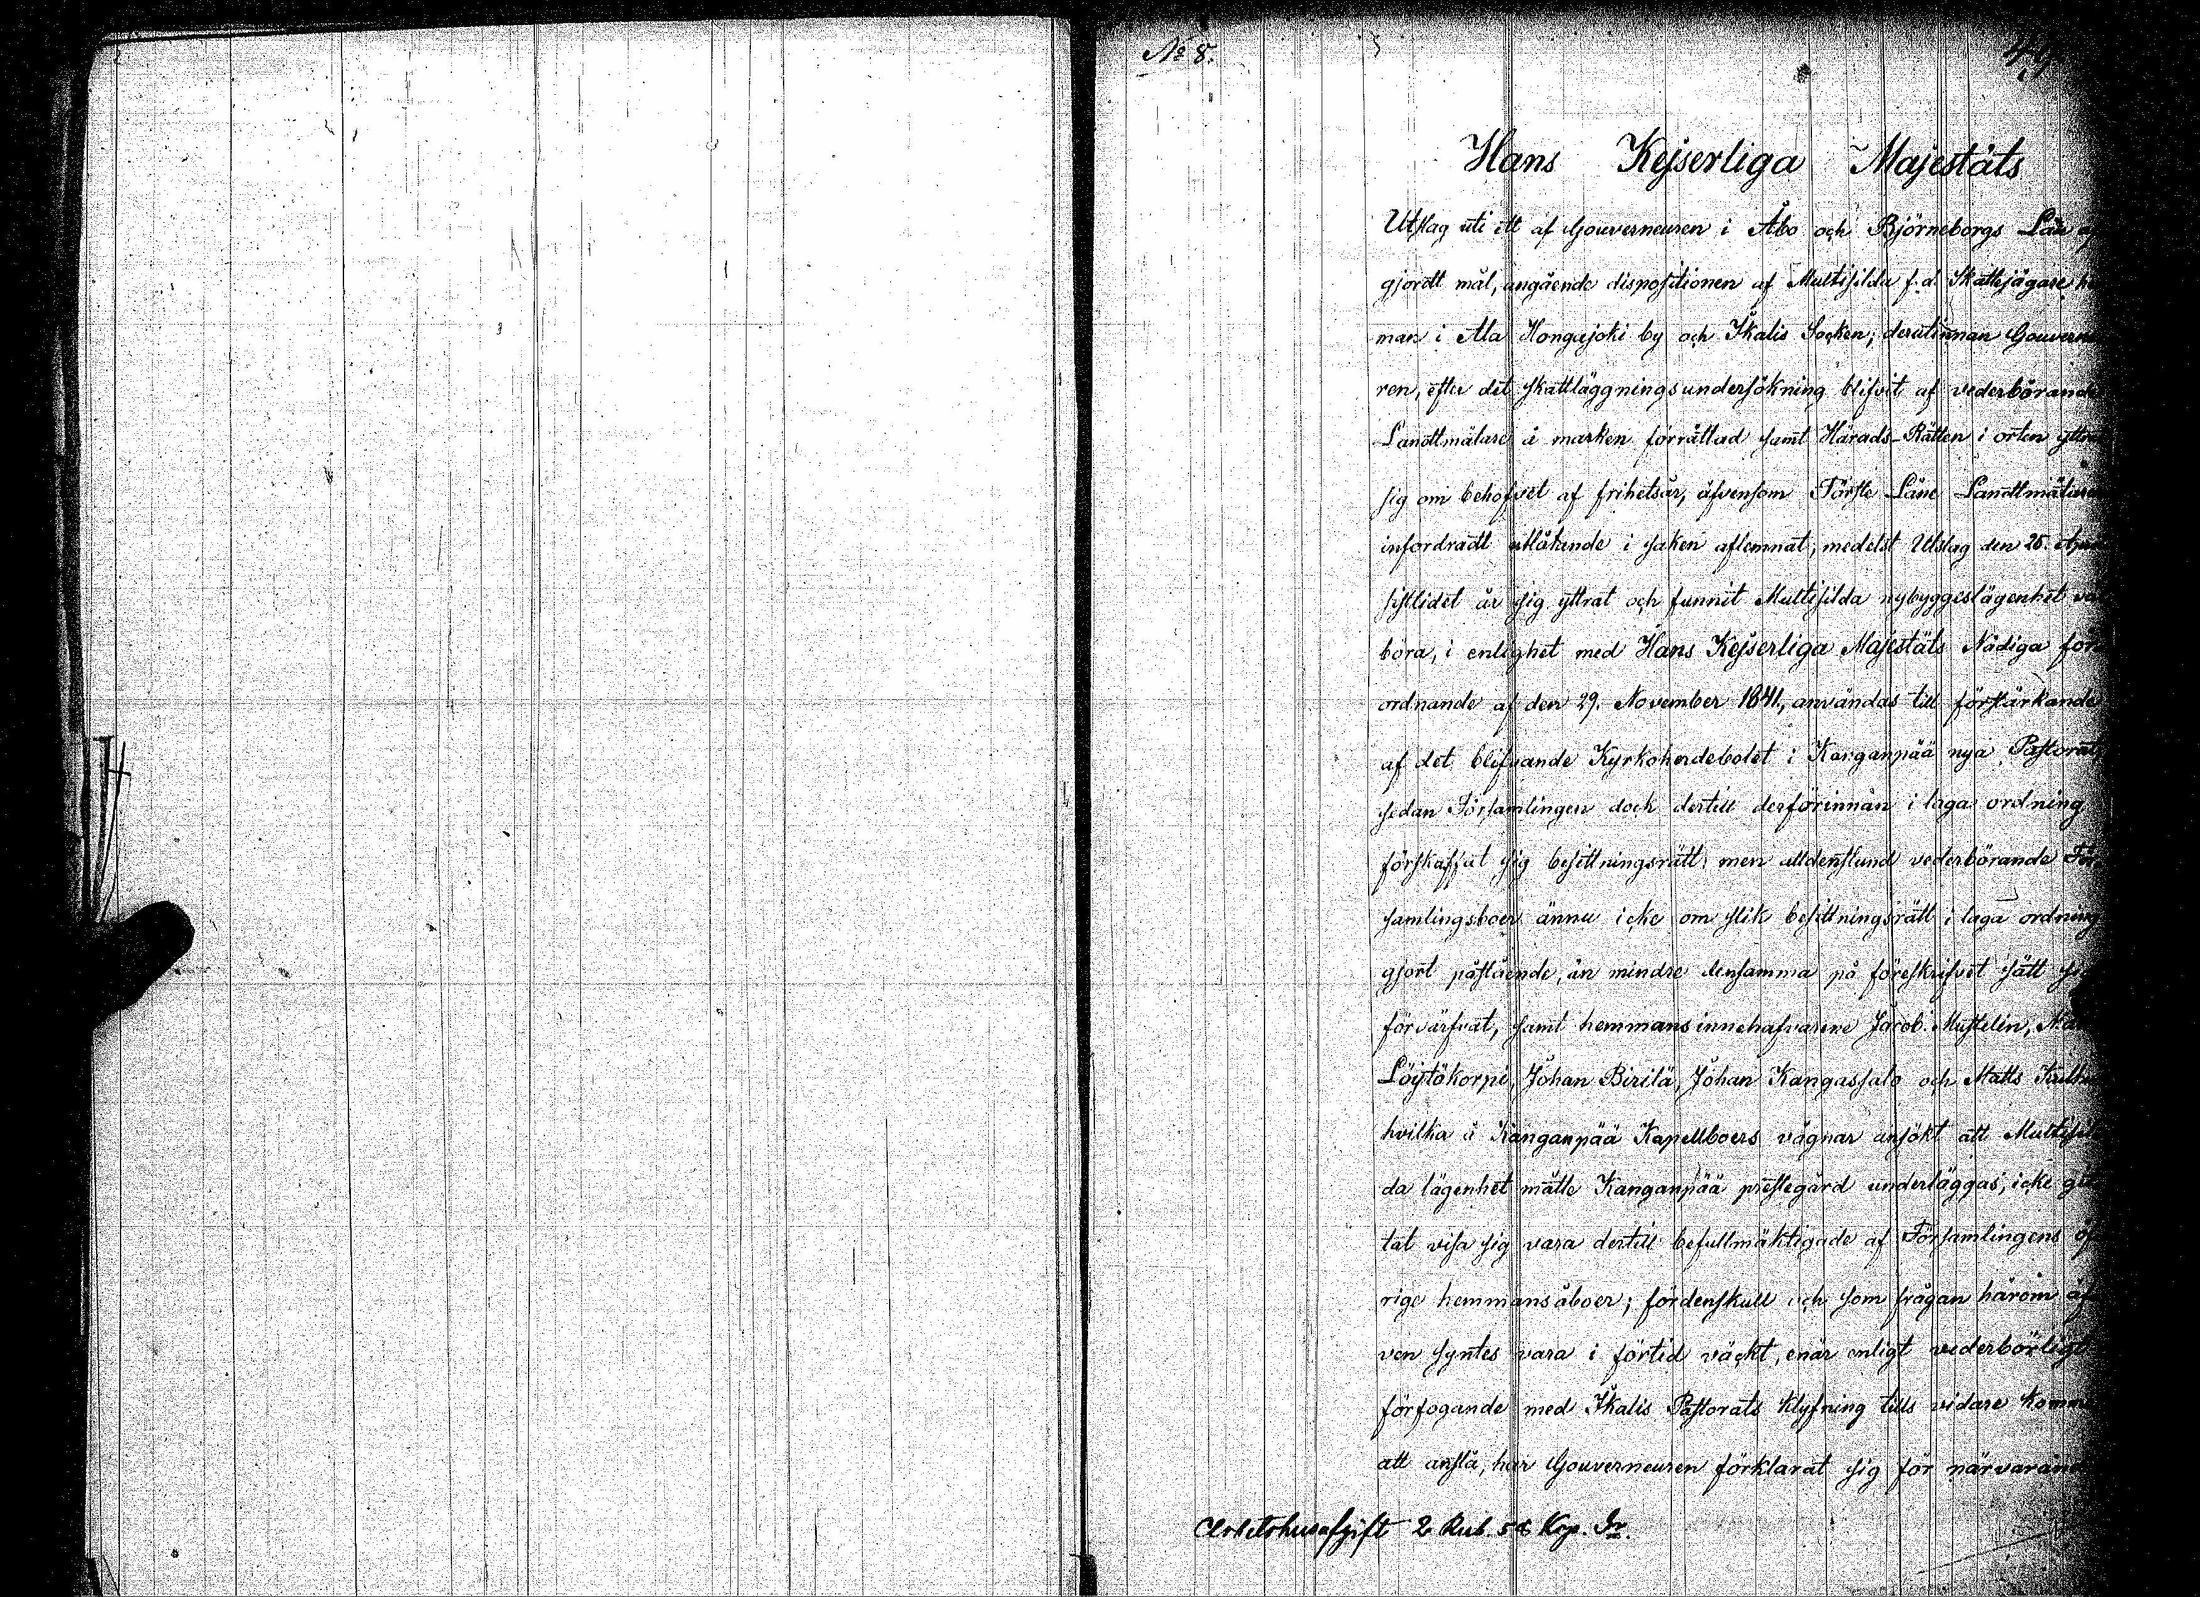 No 8.
Hans Kejserliga Majestäts
Utslag uti ett af Gouverneuren i Åbo och Björneborgs Län af
gjordt mål, angående dispositionen af Multisilda f.d. Skattejägare he
man i Ala Hongojoki by och Ikalis Socken; derutinnan Gouverne
ren, efter det skattläggningsundersökning blifvit af vederbörande
Landtmätare å marken förrättad samt Härads-Rätten i orten yttrat
sig om behofvet af frihetsår, äfvensom Förste Läne Landtmätaren
infordradt utlåtande i saken aflemnat, medelst Utslag den 25. April
sistlidet år sig yttrat och funnit Multisilda nybyggeslägenhet väl
böra, i enlighet med Hans Kejserliga Majestäts Nådiga för
ordnande af den 29. November 1841, användas till förstärkande
af det blifvande Kyrkoherdebolet i Kanganpää nya Pastorat,
sedan Församlingen doch dertill derförinnan i laga ordning
förskaffat sig besittningsrätt; men alldenstund vederbörande För
samlingsboer ännu icke om slik besittningsrätt i laga ordning
gjort påstående, än mindre densamma på föreskrifvet sätt sig
förvärfvat, samt hemmansinnehafvarene Jacob Mustelin,
Löytökorpi, Johan Birilä, Johan Kangassalo och Matts
hvilka å Kanganpää Kapellboers vägnar ansökt att Multisil
da lägenhet måtte Kanganpää prestegård underläggas, icke git
tat visa sig vara dertill befullmäktigade af Församlingens öf
rige hemmansåboer; fördenskull och som frågan härom äf
ven syntes vara i förtid väckt, enär enligt vederbörligt
förfogande med Ikalis Pastorats klyfning tills vidare komme
att anstå, har Gouverneuren förklarat sig för närvarande
Arbetshusafgift 2 Rub. 58 Kop. Sr.